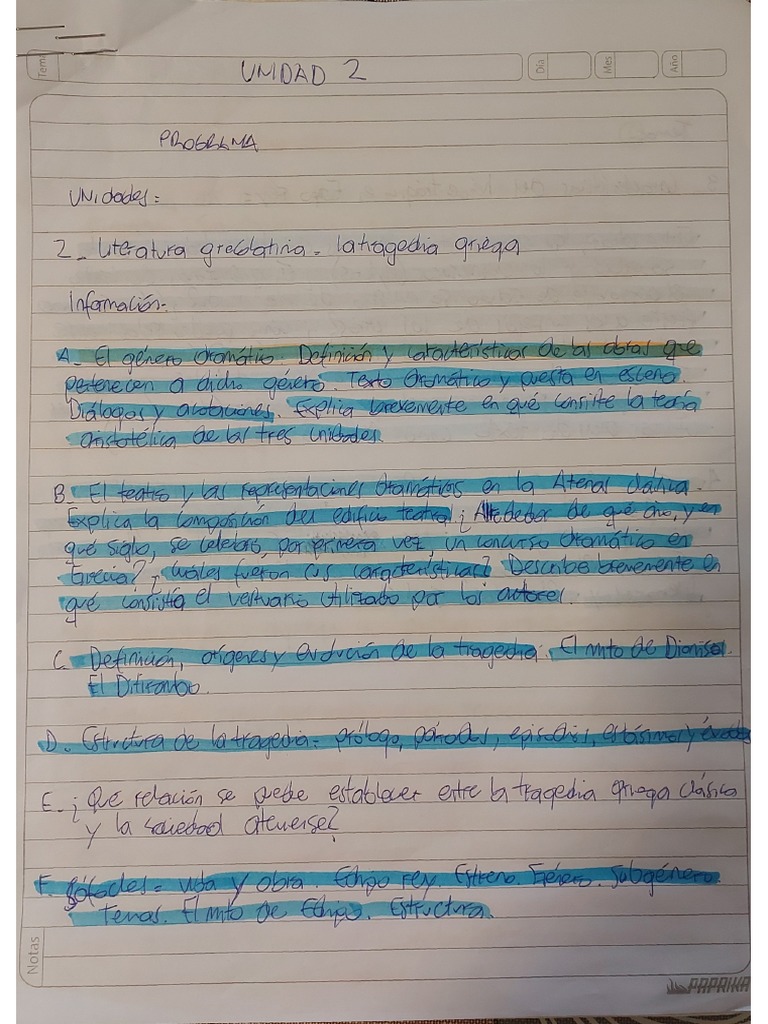 Tema
UNIDAD 2
Día
Mes
Año
PROGRAMA
UNidades:
2- Literatura grecolatina. La tragedia griega
Información:
A- El género dramático. Definición y características de las obras que
pertenecen a dicho género. Texto dramático y puesta en escena.
Diálogos y acotaciones. Explica brevemente en qué consiste la teoría
aristotélica de las tres unidades.
B- El teatro y las representaciones dramáticas en la Atenas clásica.
Explica la composición del edificio teatral ¿Alrededor de qué año, y en
qué siglo, se celebró, por primera vez, un concurso dramático en
Grecia? ¿Cuáles fueron sus características? Describe brevemente en
qué consistía el vestuario utilizado por los actores.
C. Definición, orígenes y evolución de la tragedia. El mito de Dioniso.
El Ditirambo.
D. Estructura de la tragedia: prólogo, párodos, episodios, estásimos y éxodo
E- ¿Qué relación se puede establecer entre la tragedia griega clásica
y la sociedad ateniense?
F. Sófocles: vida y obra. Edipo rey. Estreno. Género. Subgénero.
Temas. El mito de Edipo. Estructura.
Notas
PAPRIKA